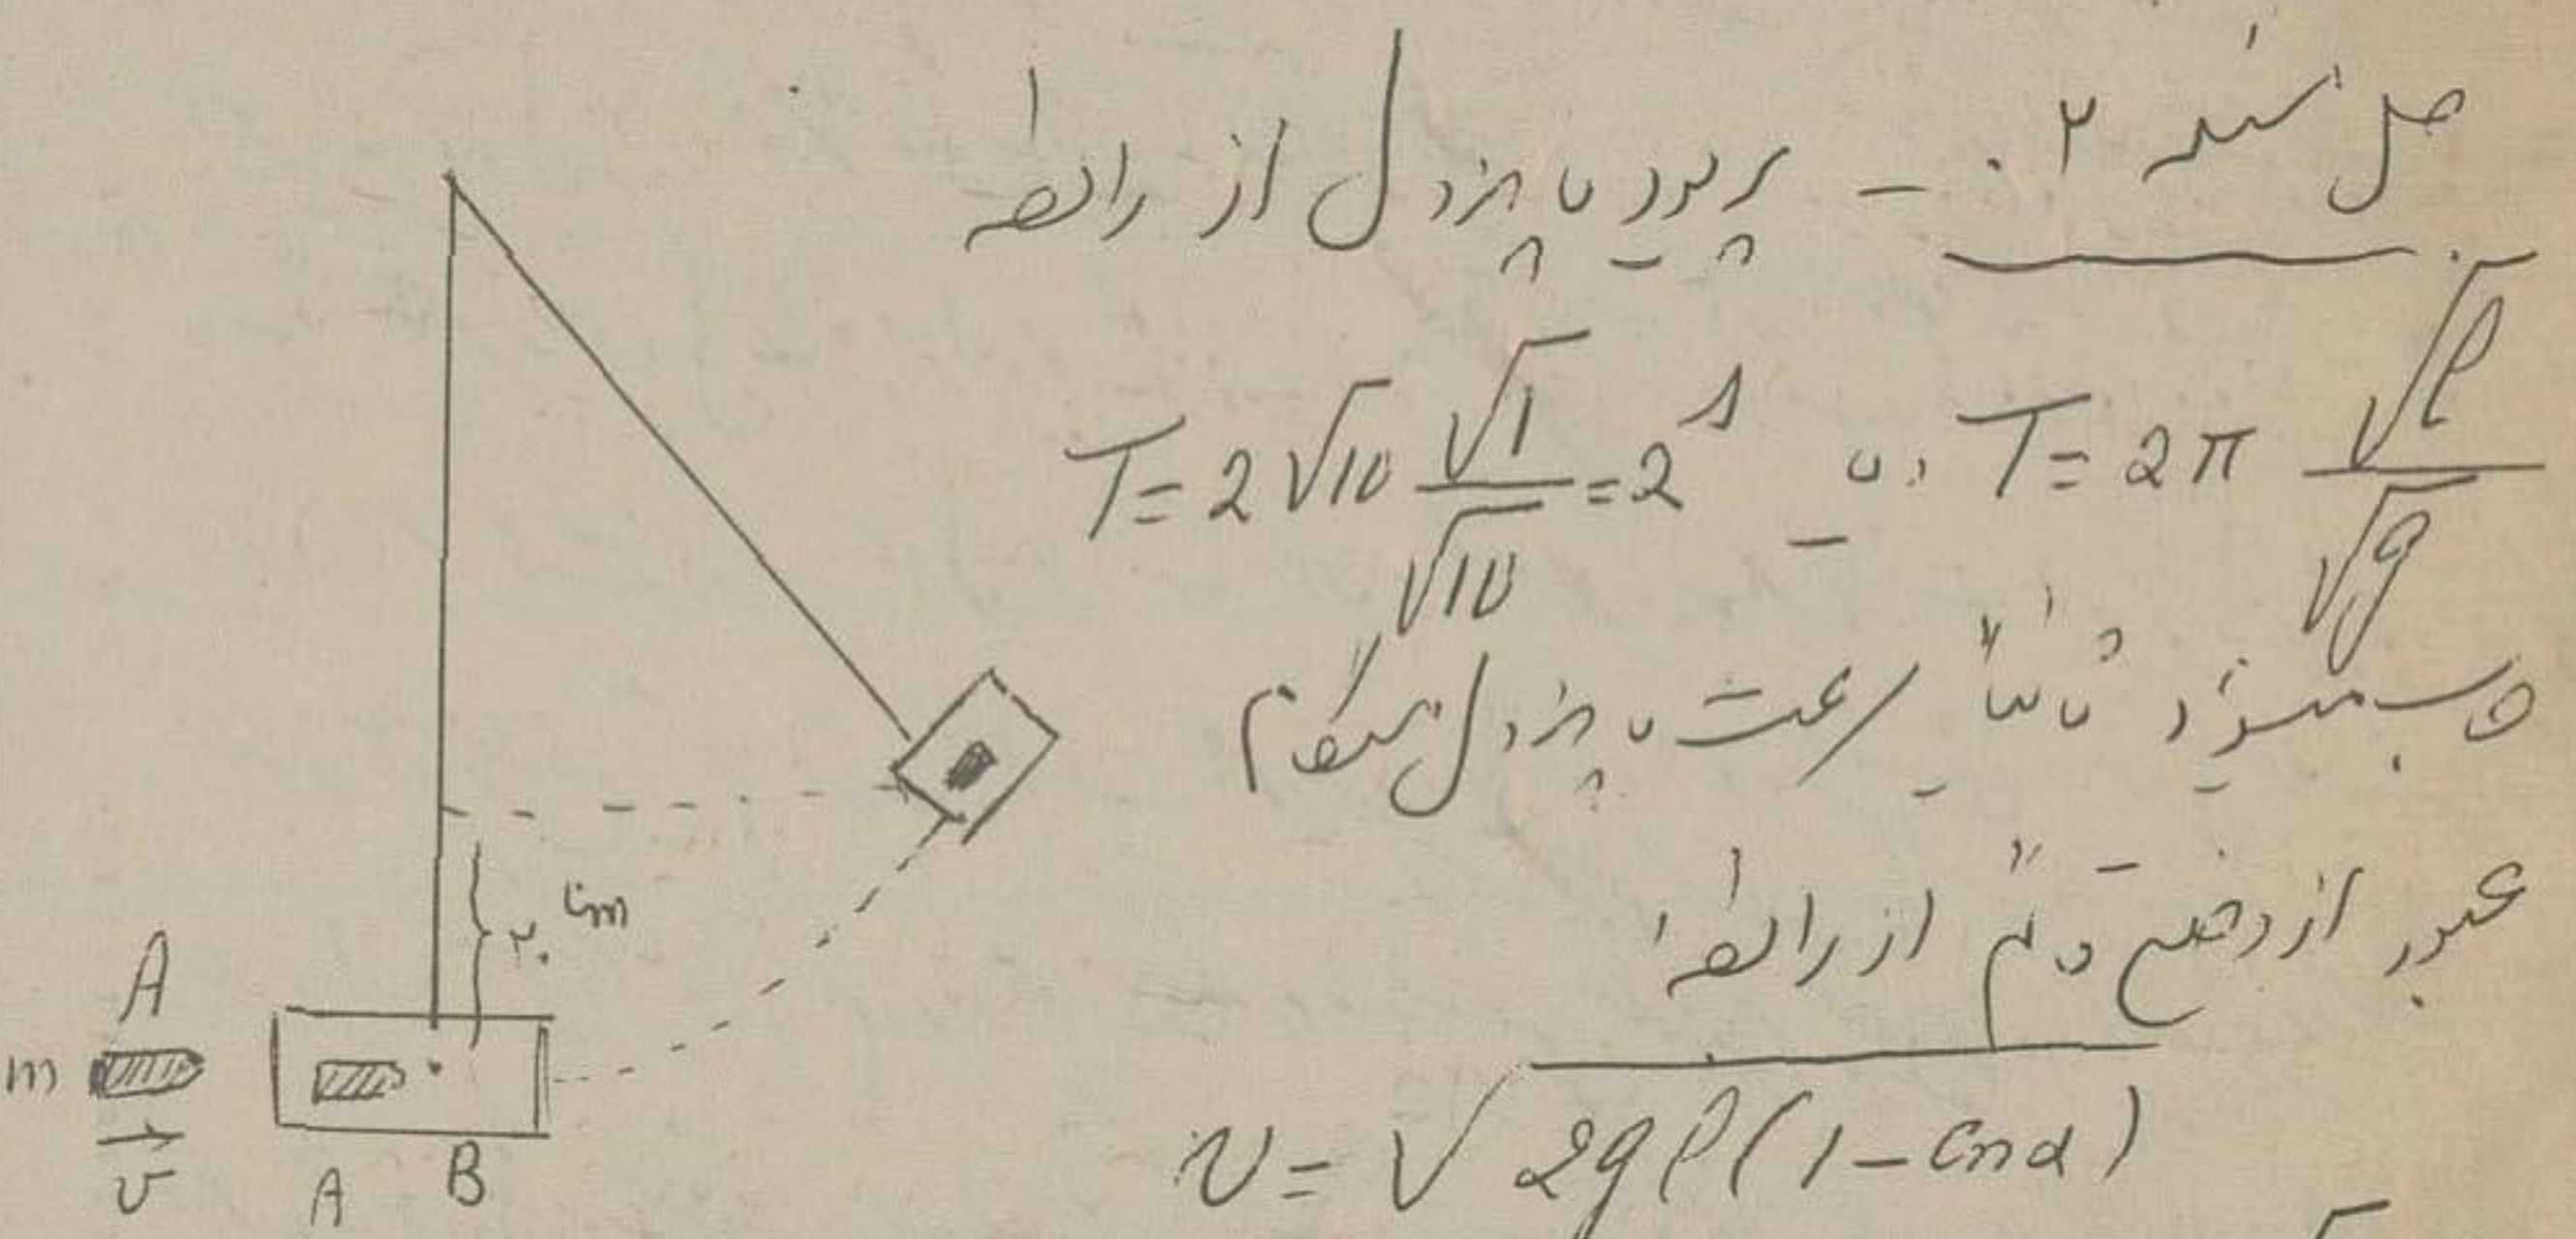 حل مسئله ۲ - پریود پاندول از رابطه
T = 2π √l / √g پس T = 2√10 √1 / √10 = 2^s
حساب میشود ثانیاً سرعت پاندول هنگام
عبور از وضع قائم از رابطه
v = √2gl(1 - Cosα)
۲۰ cm
A
m
v
A B